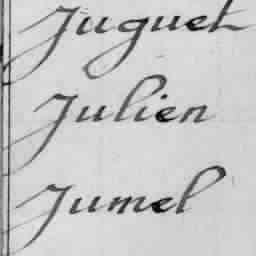 Juguet
Julien
Jumel